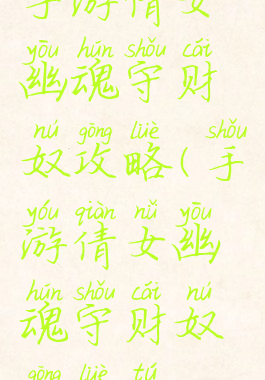 手游倩女
yōu hún shǒu cái
幽魂守财
nú gōng lüè shǒu
奴攻略(手
yóu qiàn nǚ yōu
游倩女幽
hún shǒu cái nú
魂守财奴
gōng lüè tú